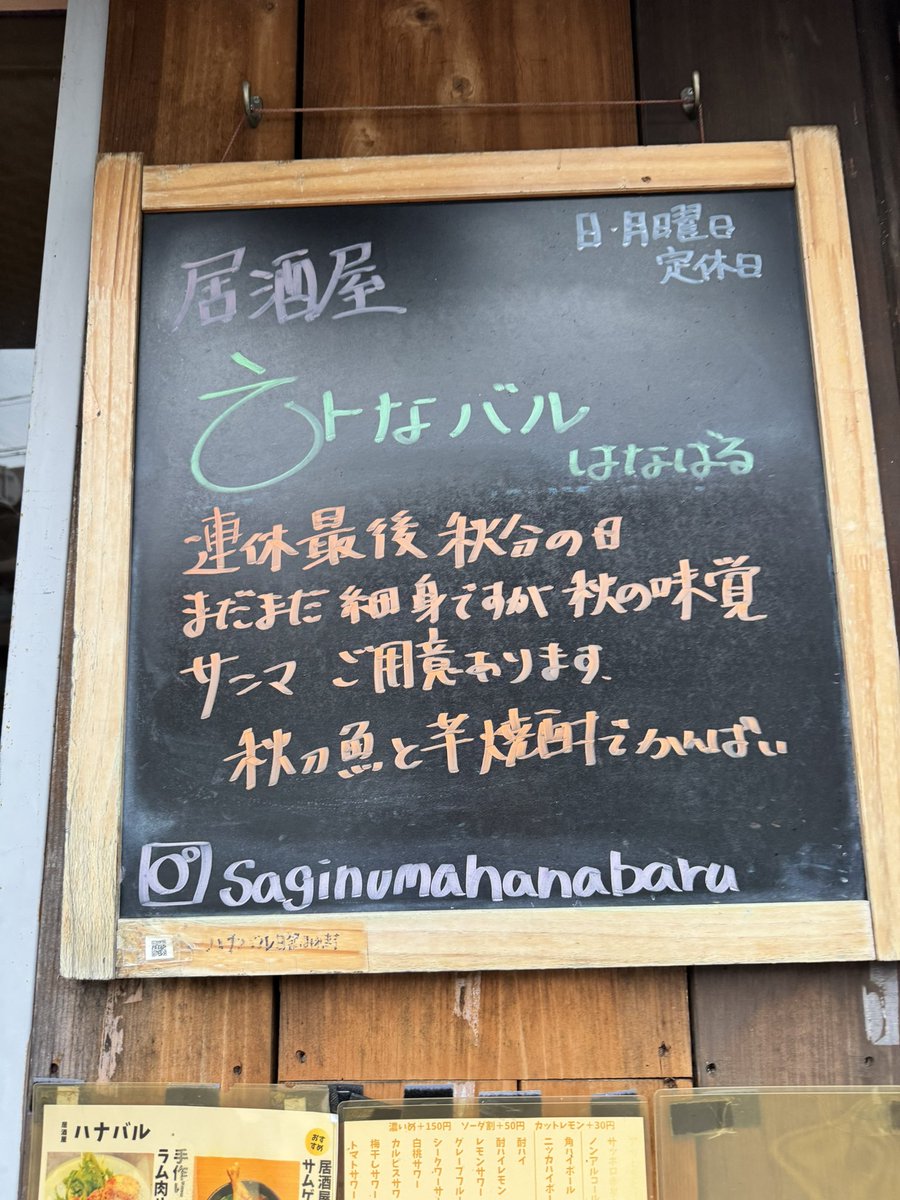 日・月曜日
定休日
居酒屋
하なバル
はなばる
連休最後 秋分の日
まだまだ 細身ですが 秋の味覚
サンマ ご用意あります、
秋刀魚と芋焼酎でかんぱい
saginumahanabaru
居酒屋 ハナバル
おすすめ
手作り
ラム肉
居酒屋
サムゲ
濃いめ+150円 ソーダ割+50円 カットレモン+30円
ノンアルコール
角ハイボール
ニッカハイボ
酎ハイ
酎ハイレモン
レモンサワー
グレープフル
シークワーサー
白桃サワー
カルピスサワ
梅干しサワー
トマトサワー